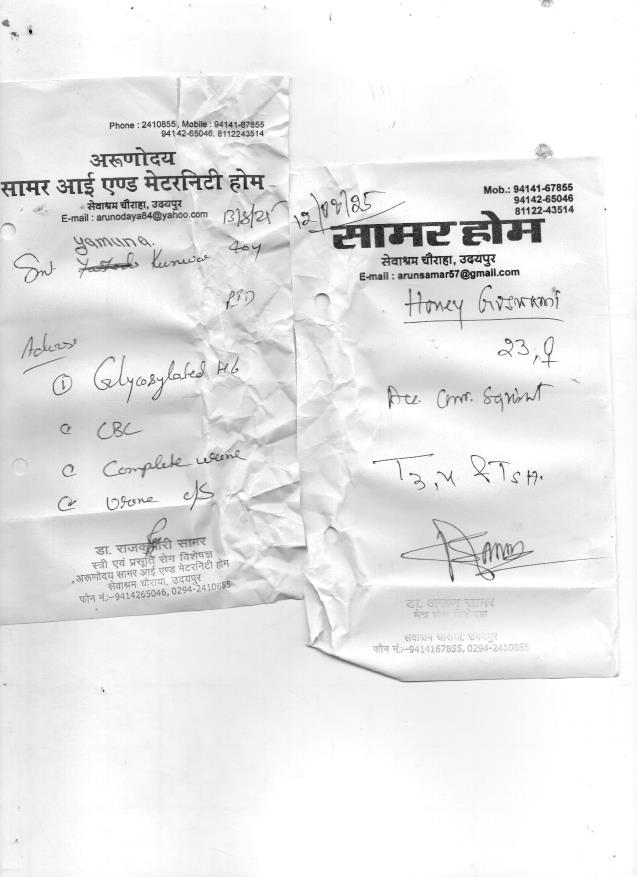 Phone : 2410855, Mobile : 94141-67855
94142-65046, 8112243514
अरूणोदय
सामर आई एण्ड मेटरनिटी होम
सेवाश्रम चौराहा, उदयपुर
E-mail : arunodaya84@yahoo.com
13/8/25
Yamuna.
Smt Kunwar 40y
Advise
① Glycosylated Hb
CBC
Complete urine
Urine c/s
डा. राजकुमारी सामर
स्त्री एवं प्रसूति रोग विशेषज्ञ
अरूणोदय सामर आई एण्ड मेटरनिटी होम
सेवाश्रम चौराया, उदयपुर
फोन नं.:-9414265046, 0294-2410855
Mob.: 94141-67855
94142-65046
81122-43514
12/08/25
सामर होम
सेवाश्रम चौराहा, उदयपुर
E-mail : arunsamar57@gmail.com
Honey Goswami
23, ♀
Acc. Conv. Squint
T3, 4 & TSH.
डा. अरूण सामर
नेत्र रोग विशेषज्ञ
सेवाश्रम चौराया, उदयपुर
फोन नं.:-9414167855, 0294-2410855